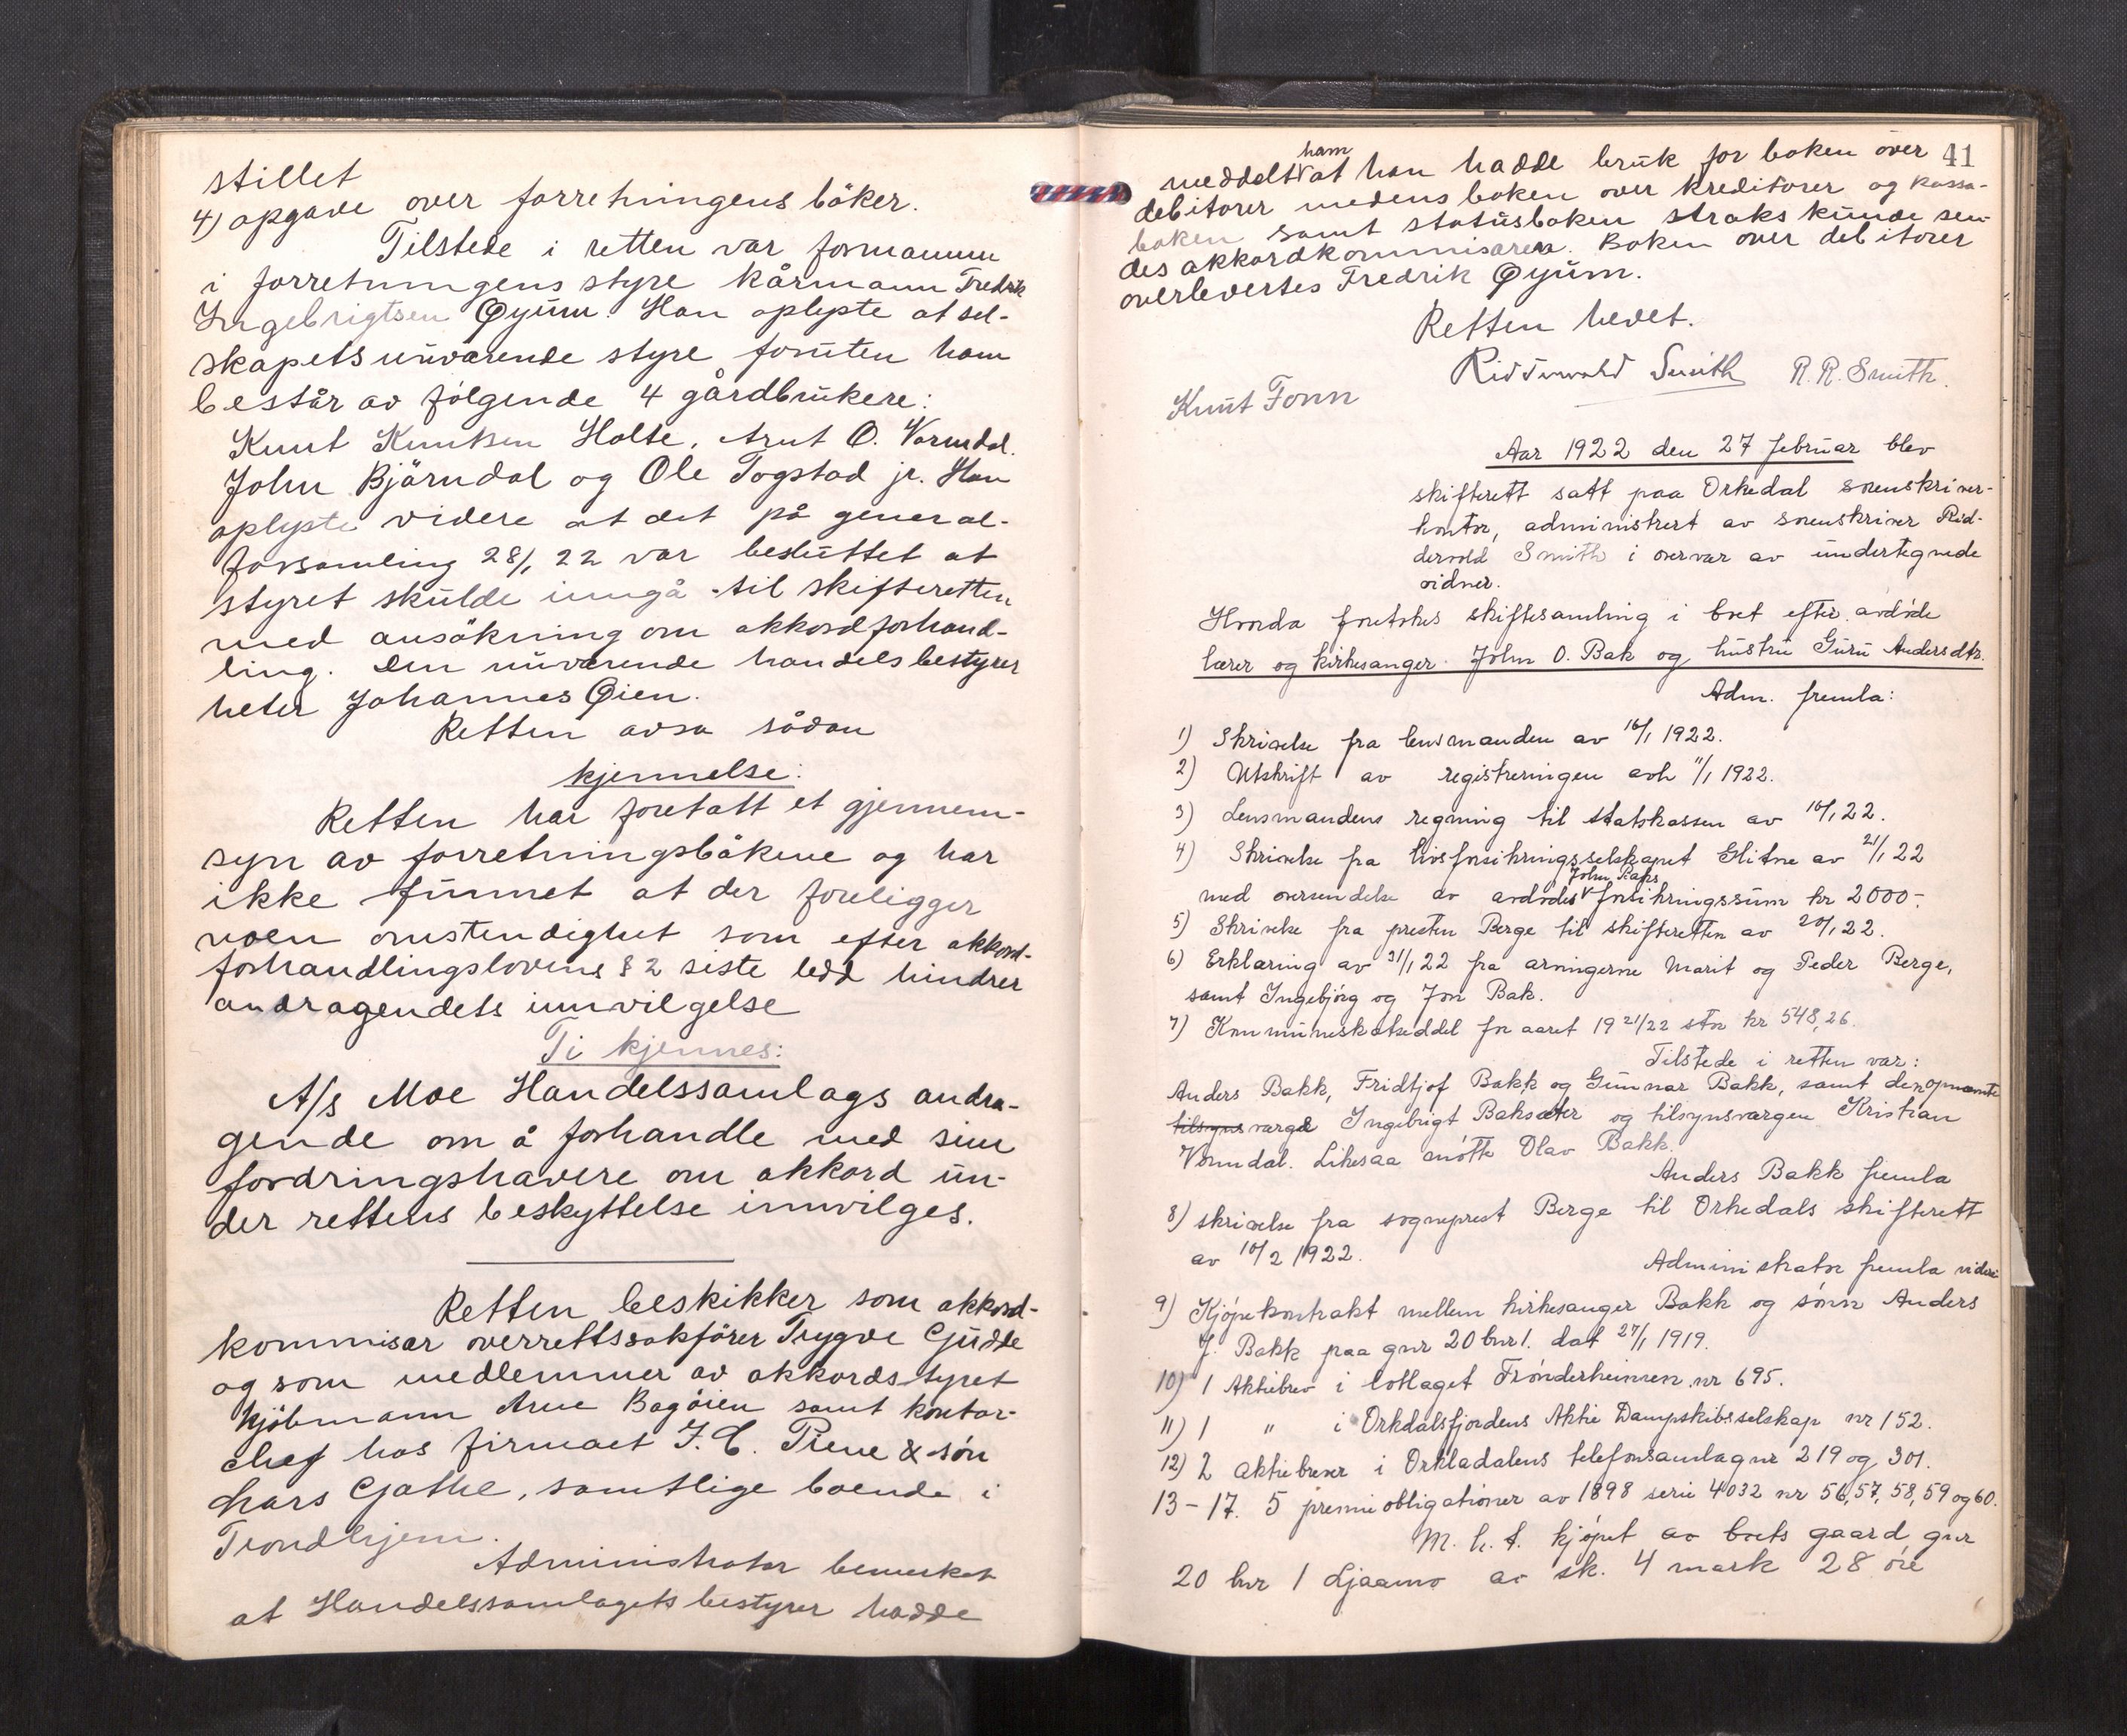 stillet
4) opgave over forretningens bøker.
Tilstede i retten var formannen
i forretningens styre kårmann Fredrik
Ingebrigtsen Øyum. Han oplyste at sel-
skapets nuværende styre foruten ham
består av følgende 4 gårdbrukere:
Knut Knutsen Holte, Arnt O. Vormdal.
John Bjørndal og Ole Togstad jr. Han
oplyste videre at det på general-
forsamling 28/1 22 var besluttet at
styret skulde inngå til skifteretten
med ansøkning om akkordforhand-
ling. Den nuværende handelsbestyrer
heter Johannes Øien.
Retten avsa sådan
kjennelse:
Retten har foretatt et gjennem-
syn av forretningsbøkene og har
ikke funnet at der foreligger
noen omstendighet som efter akkord-
forhandlingslovens § 2 siste ledd hindrer
andragendets innvilgelse
Ti kjennes:
A/s Moe Handelssamlags andra-
gende om å forhandle med sine
fordringshavere om akkord un-
der rettens beskyttelse innvilges.
Retten beskikker som akkord-
kommisær overrettssakfører Trygve Gudde
og som medlemmer av akkordstyret
kjøbmann Arne Bagøien samt kontor-
chef hos firmaet I. C. Piene & søn
Lars Gathe, samtlige boende i
Trondhjem.
Administrator bemerket
at Handelssamlagets bestyrer hadde
41
meddelt ham at han hadde bruk for boken over
debitorer medens boken over kreditorer og kassa-
boken samt statusboken straks kunde sen-
des akkordkommisæren. Boken over debitorer
overlevertes Fredrik Øyum.
Retten hevet.
Ridderwold Smith R. R. Smith.
Knut Fonn
Aar 1922 den 27 februar blev
skifterett satt paa Orkedal sorenskriver-
kontor, administrert av sorenskriver Rid-
dervold Smith i overvær av undertegnede
vidner.
Hvorda foretokes skiftesamling i boet efter avdøde
lærer og kirkesanger John O. Bak og hustru Guru Andersdtr.
Adm. fremla:
1) Skrivelse fra lensmanden av 16/1 1922.
2) Utskrift av registreringen avh 11/1 1922.
3) Lensmandens regning til statskassen av 16/1 22.
4) Skrivelse fra livsforsikringsselskapet Glitne av 21/1 22
med oversendelse av avdødes John Baks forsikringssum kr 2000-.
5) Skrivelse fra presten Berge til skifteretten av 20/1 22.
6) Erklæring av 31/1 22 fra arvingerne Marit og Peder Berge,
samt Ingebjørg og Jon Bak.
7) Kommuneskatseddel for aaret 1921/22 stor kr 548,26.
Tilstede i retten var:
Anders Bakk, Fridtjof Bakk og Gunnar Bakk, samt den opnævnte
tilsyns værge Ingebrigt Baksæter og tilsynsværgen Kristian
Vormdal. Likesaa møtte Olav Bakk.
Anders Bakk fremla
8) skrivelse fra sogneprest Berge til Orkedals skifterett
av 10/2 1922.
Administrator fremla videre
9) Kjøpekontrakt mellem kirkesanger Bakk og sønn Anders
J. Bakk paa gnr 20 bnr 1. dat 27/1 1919.
10) 1 Aktiebrev i lotlaget Trønderheimen nr 695.
11) 1 " i Orkdalsfjordens Aktie Dampskibsselskap nr 152.
12) 2 aktiebrever i Orkladalens telefonsamlag nr 219 og 301.
13-17. 5 premieobligationer av 1898 serie 4032 nr 56, 57, 58, 59 og 60.
M. h. t. kjøpet av boets gaard gnr
20 bnr 1 Ljaamo av sk. 4 mark 28 øre